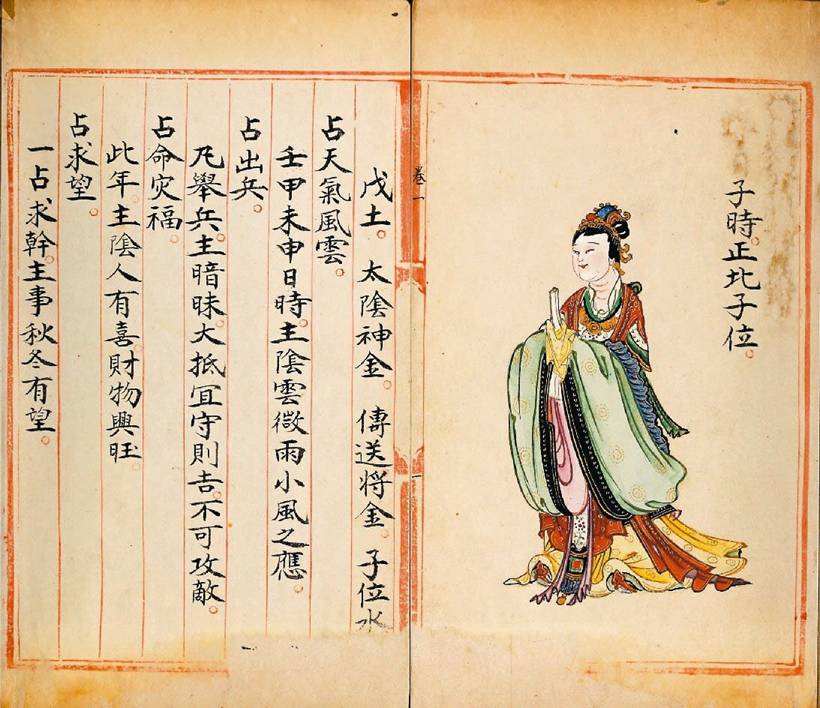 子時正北子位。
卷一
一
戊土。太陰神金。傳送將金。子位水
占天氣風雲。
壬甲未申日時。主陰雲微雨小風之應。
占出兵。
凡舉兵主暗昧。大抵宜守則吉。不可攻敵。
占命灾福。
此年主陰人有喜。財物興旺。
占求望。
一占求幹。主事秋冬有望。